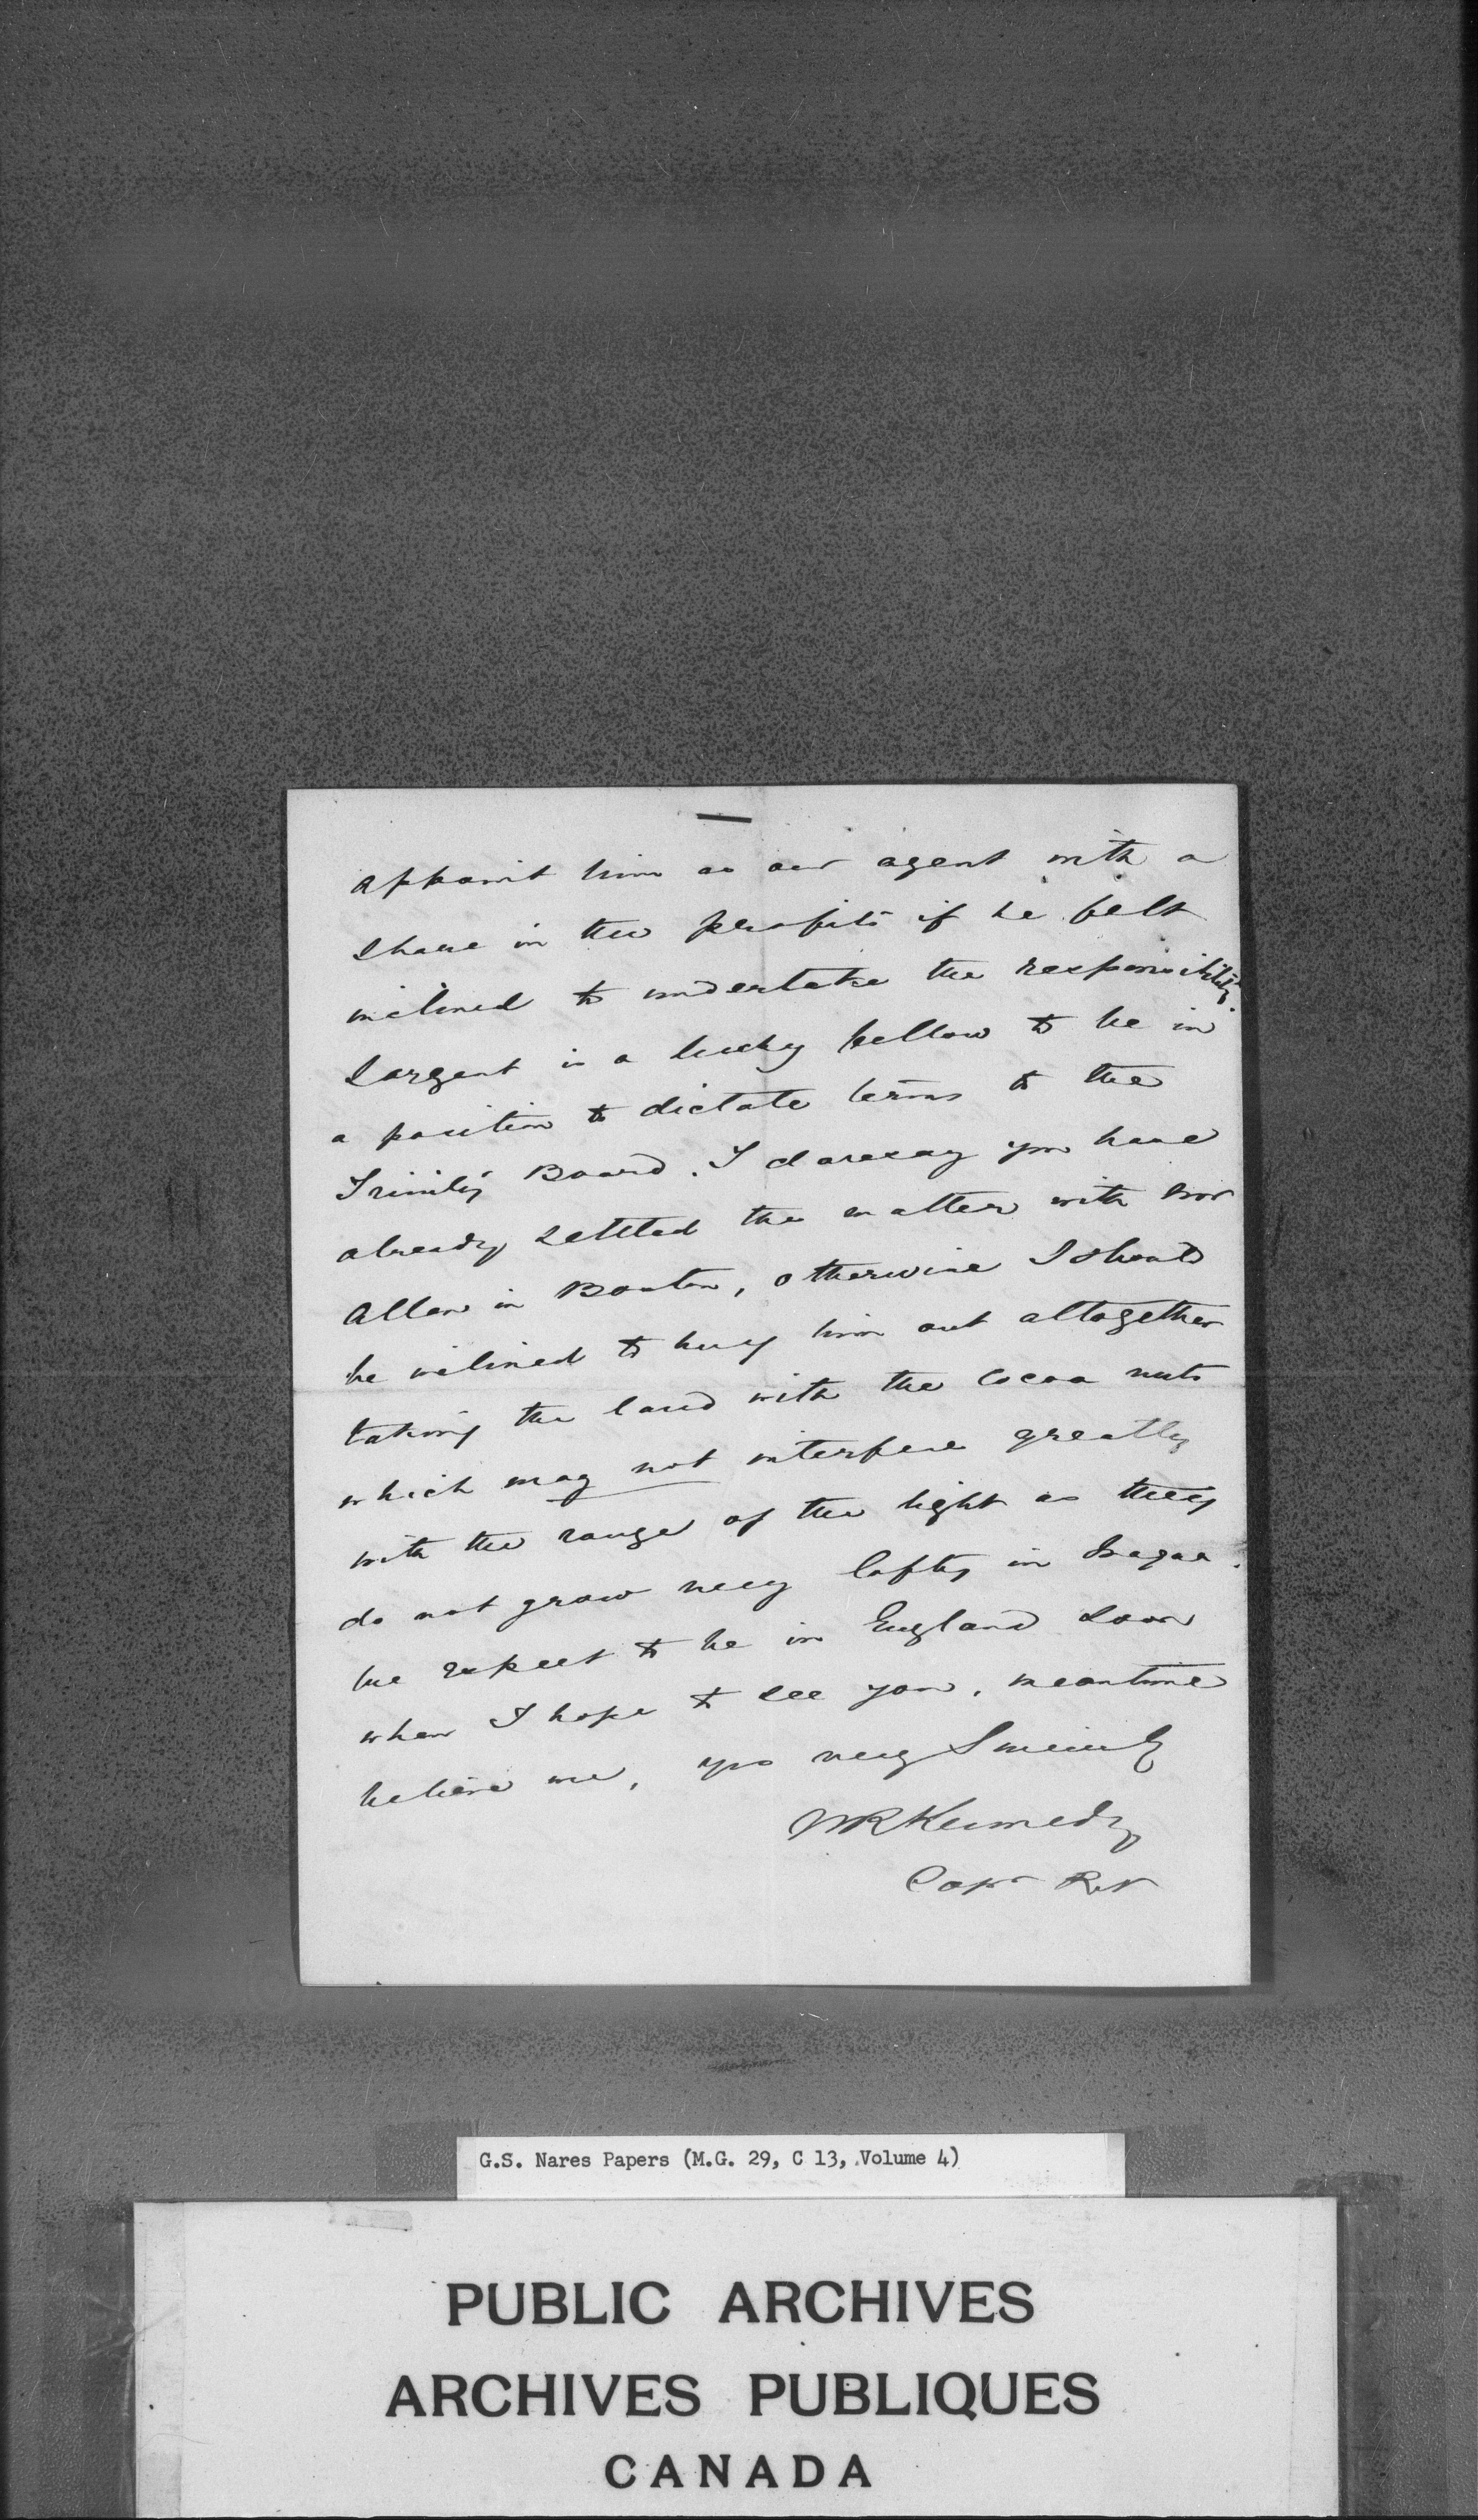 appoint him as our agent with a
share in the profits if he felt
inclined to undertake the responsibility.
Sargent is a lucky fellow to be in
a position to dictate terms to the
Trinity Board. I daresay you have
already settled the matter with
Allen in Boston, otherwise I should
be inclined to buy him out altogether
taking the land with the Cocoa nuts
which may not interfere greatly
with the range of the light as they
do not grow very lofty in
We expect to be in England soon
when I hope to see you, meantime
believe me, yrs very Sincerely
WR Kennedy
Capn RN
G.S. Nares Papers (M.G. 29, C 13, Volume 4)
PUBLIC ARCHIVES
ARCHIVES PUBLIQUES
CANADA